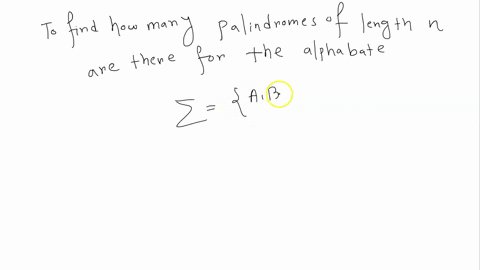 To find how many palindromes of length n
are there for the alphabate
Σ = { A, B